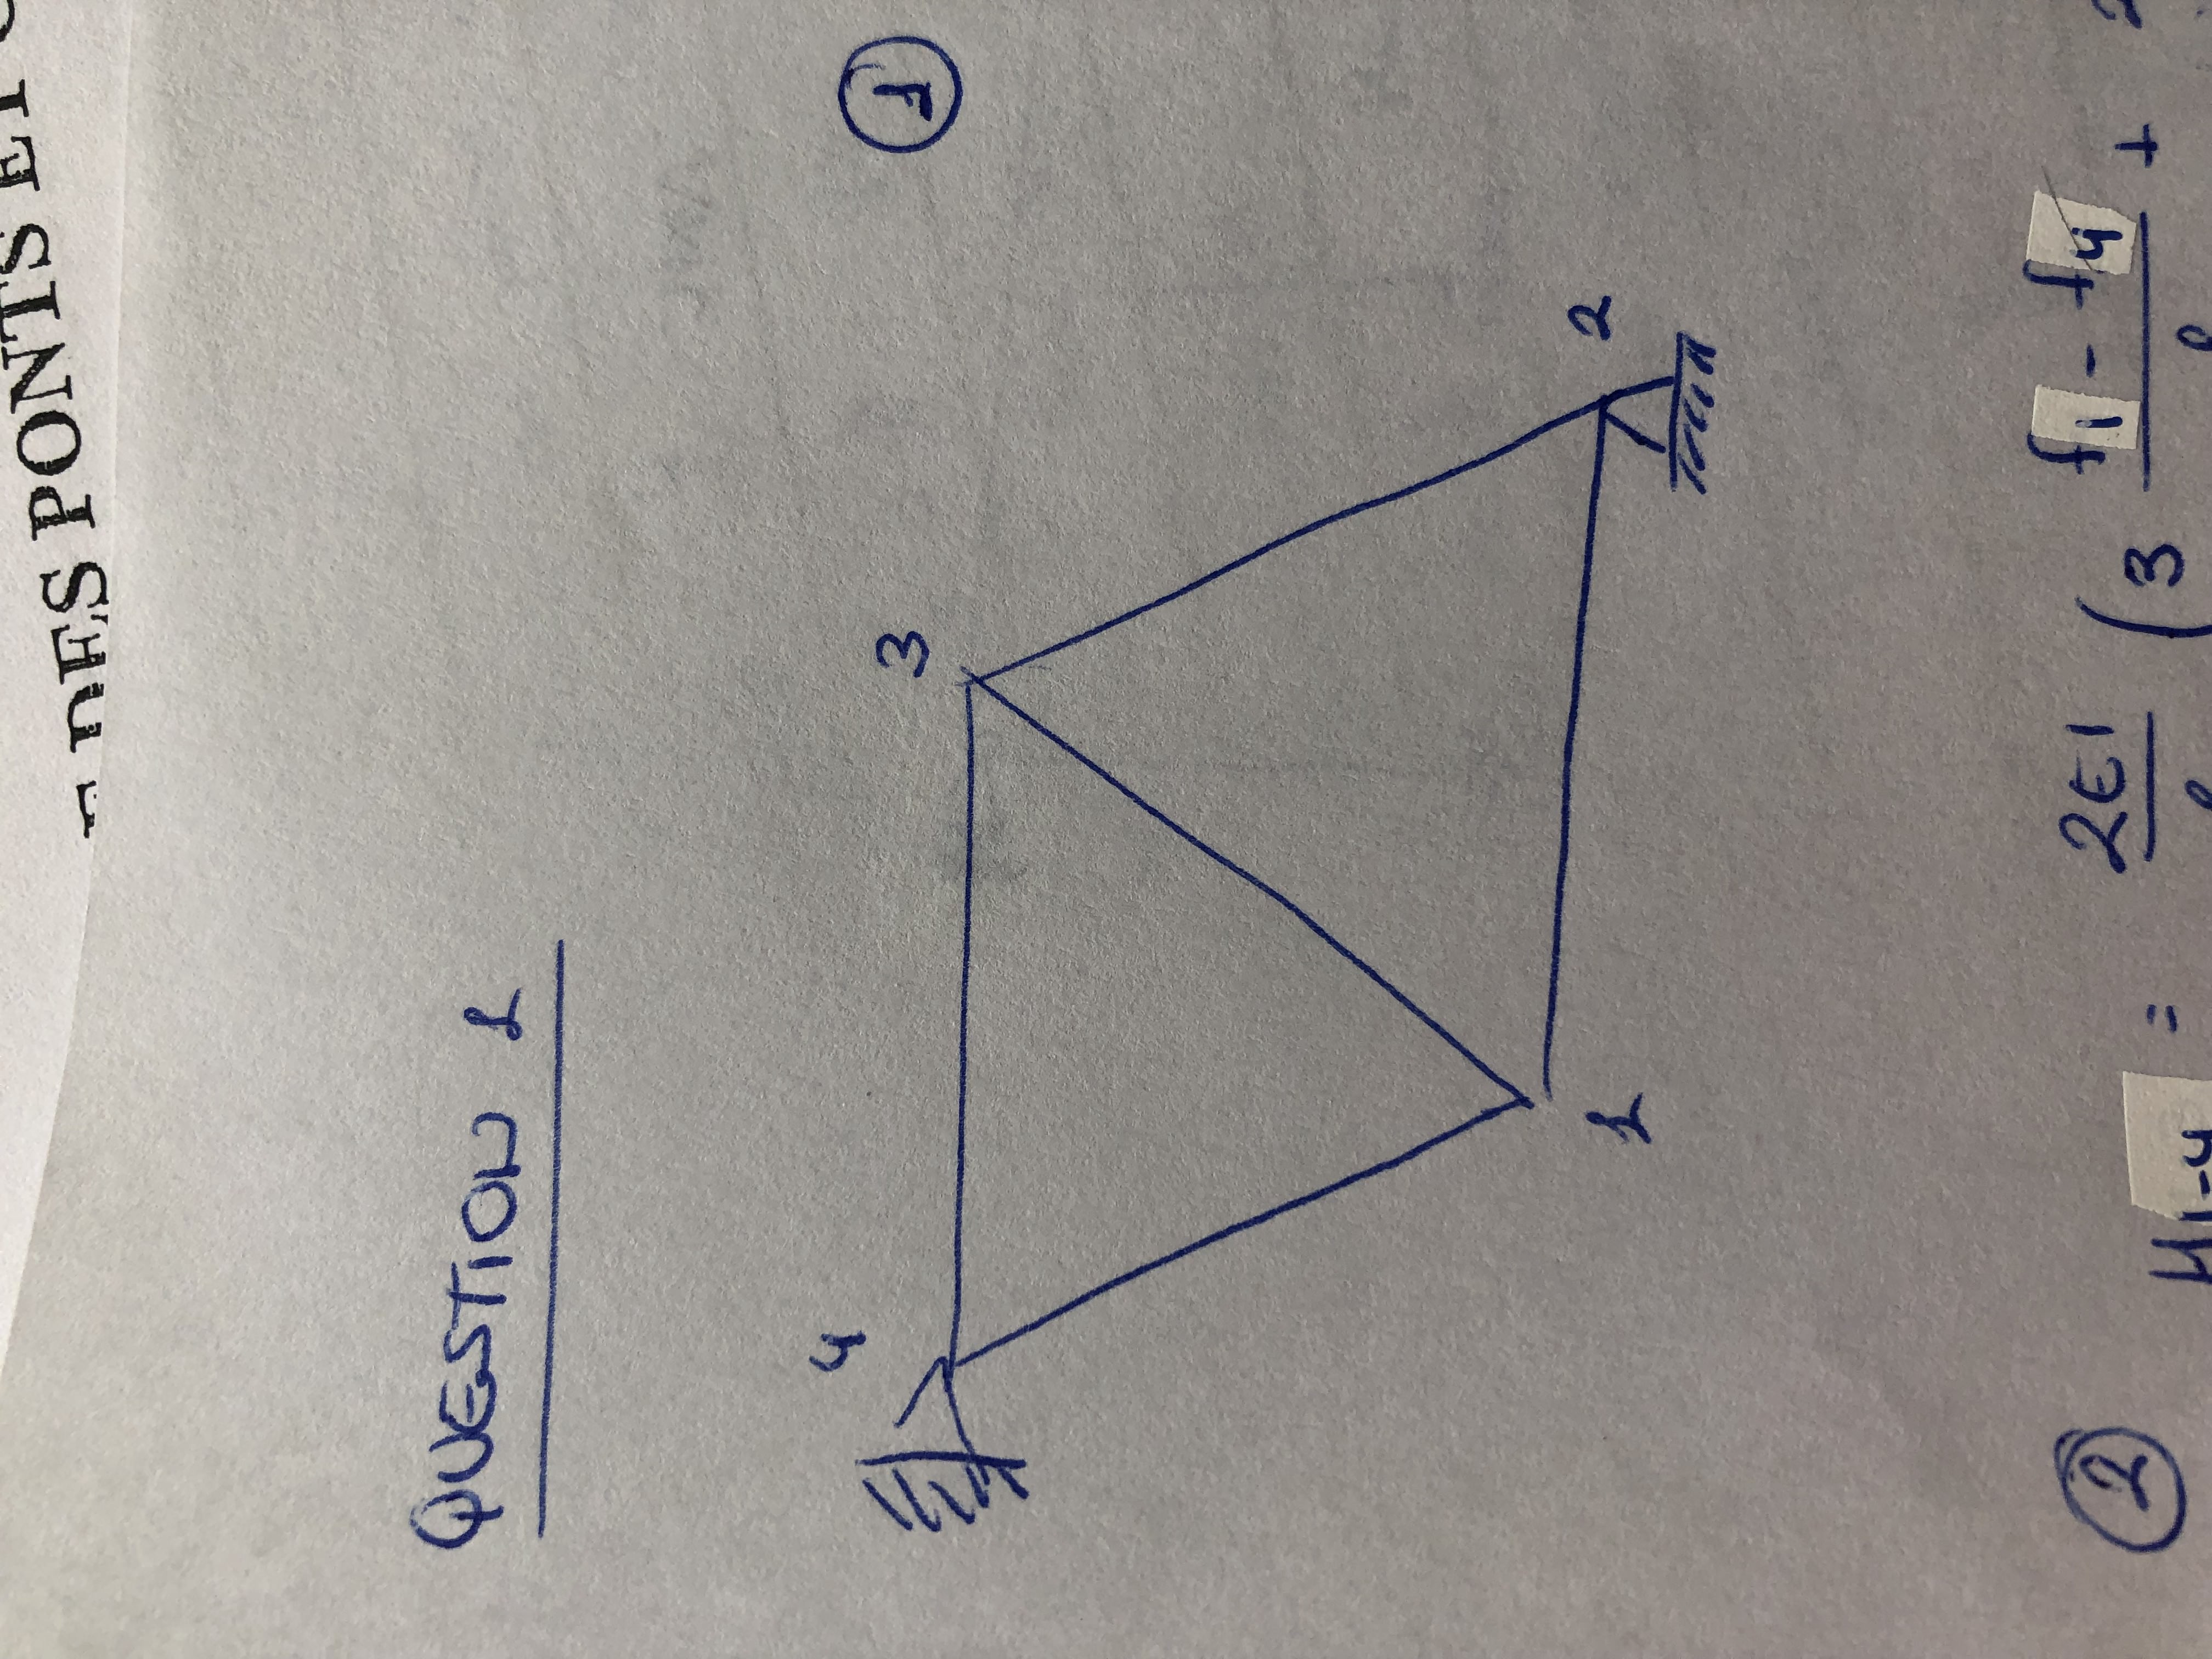 DES PONTS ET
QUESTION 1
4
3
1
1
2
2 M1-4 = 2EI (3 f1 - f4 +